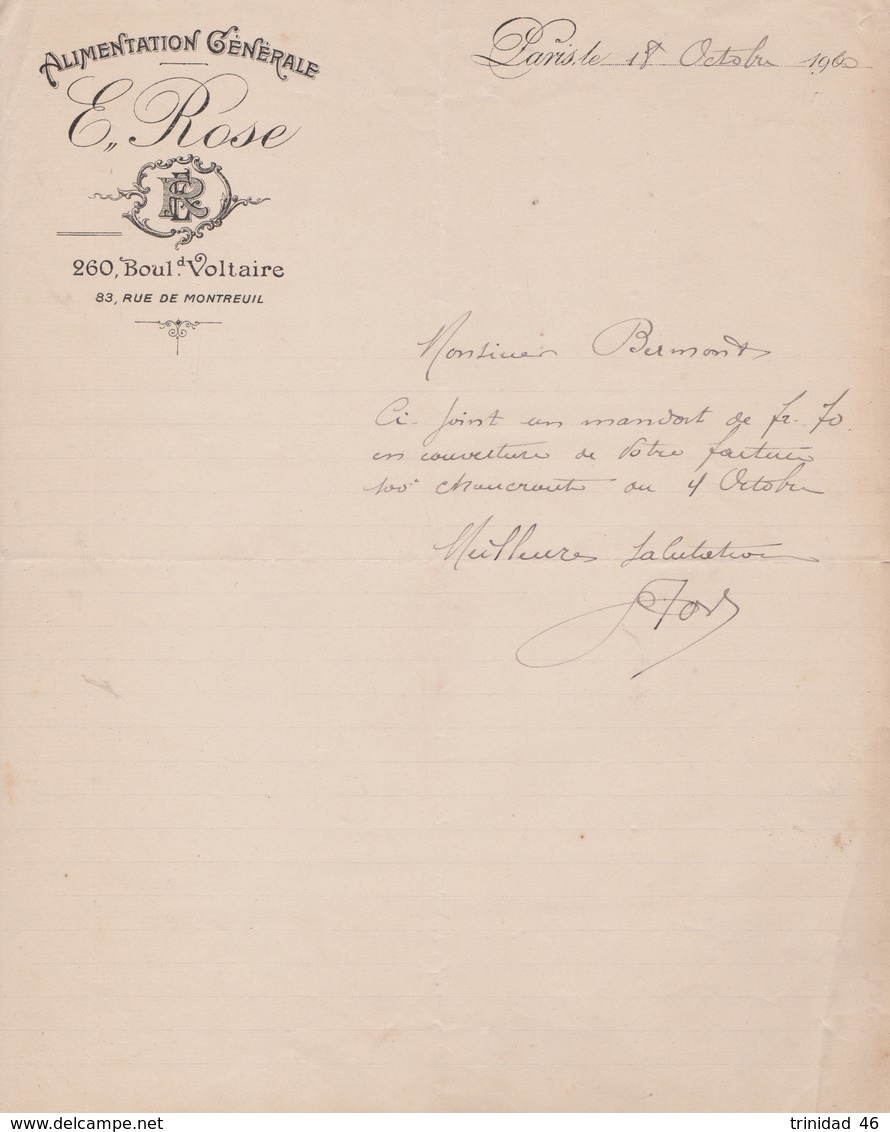 ALIMENTATION GÉNÉRALE
E. Rose
ER
260, Boul.d Voltaire
83, RUE DE MONTREUIL
Paris, le 18 Octobre 1900
Monsieur Bermont
Ci-joint un mandat de fr. 70
en couverture de votre facture
100k choucroute du 4 Octobre
Meilleures salutations
www.delcampe.net
trinidad 46